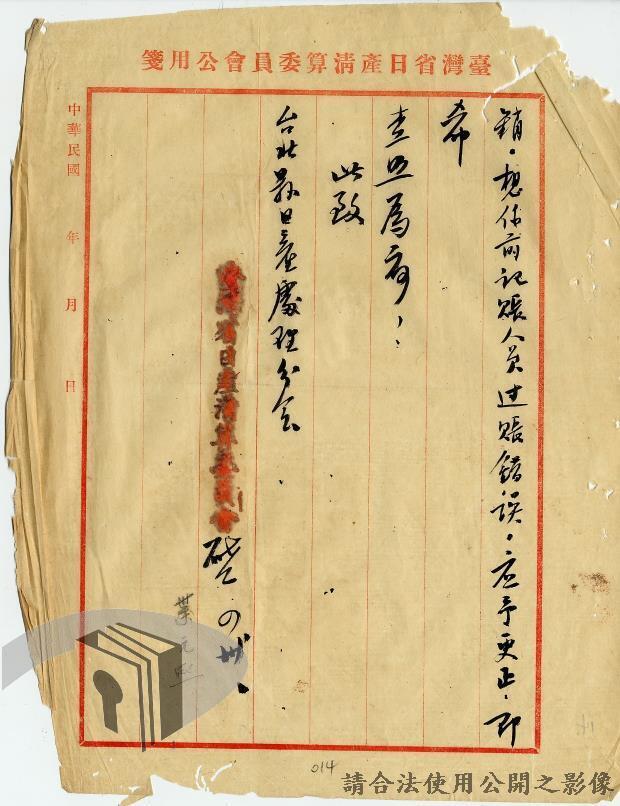 臺灣省日產清算委員會公用箋
銷。想係前記賬人員过賬錯誤。应予更正。即
希
查照為荷。
此致
台北縣日產處理分会
臺灣省日產清算委員會啓 四 卅
葉元熙
中華民國 年 月 日
014
請合法使用公開之影像